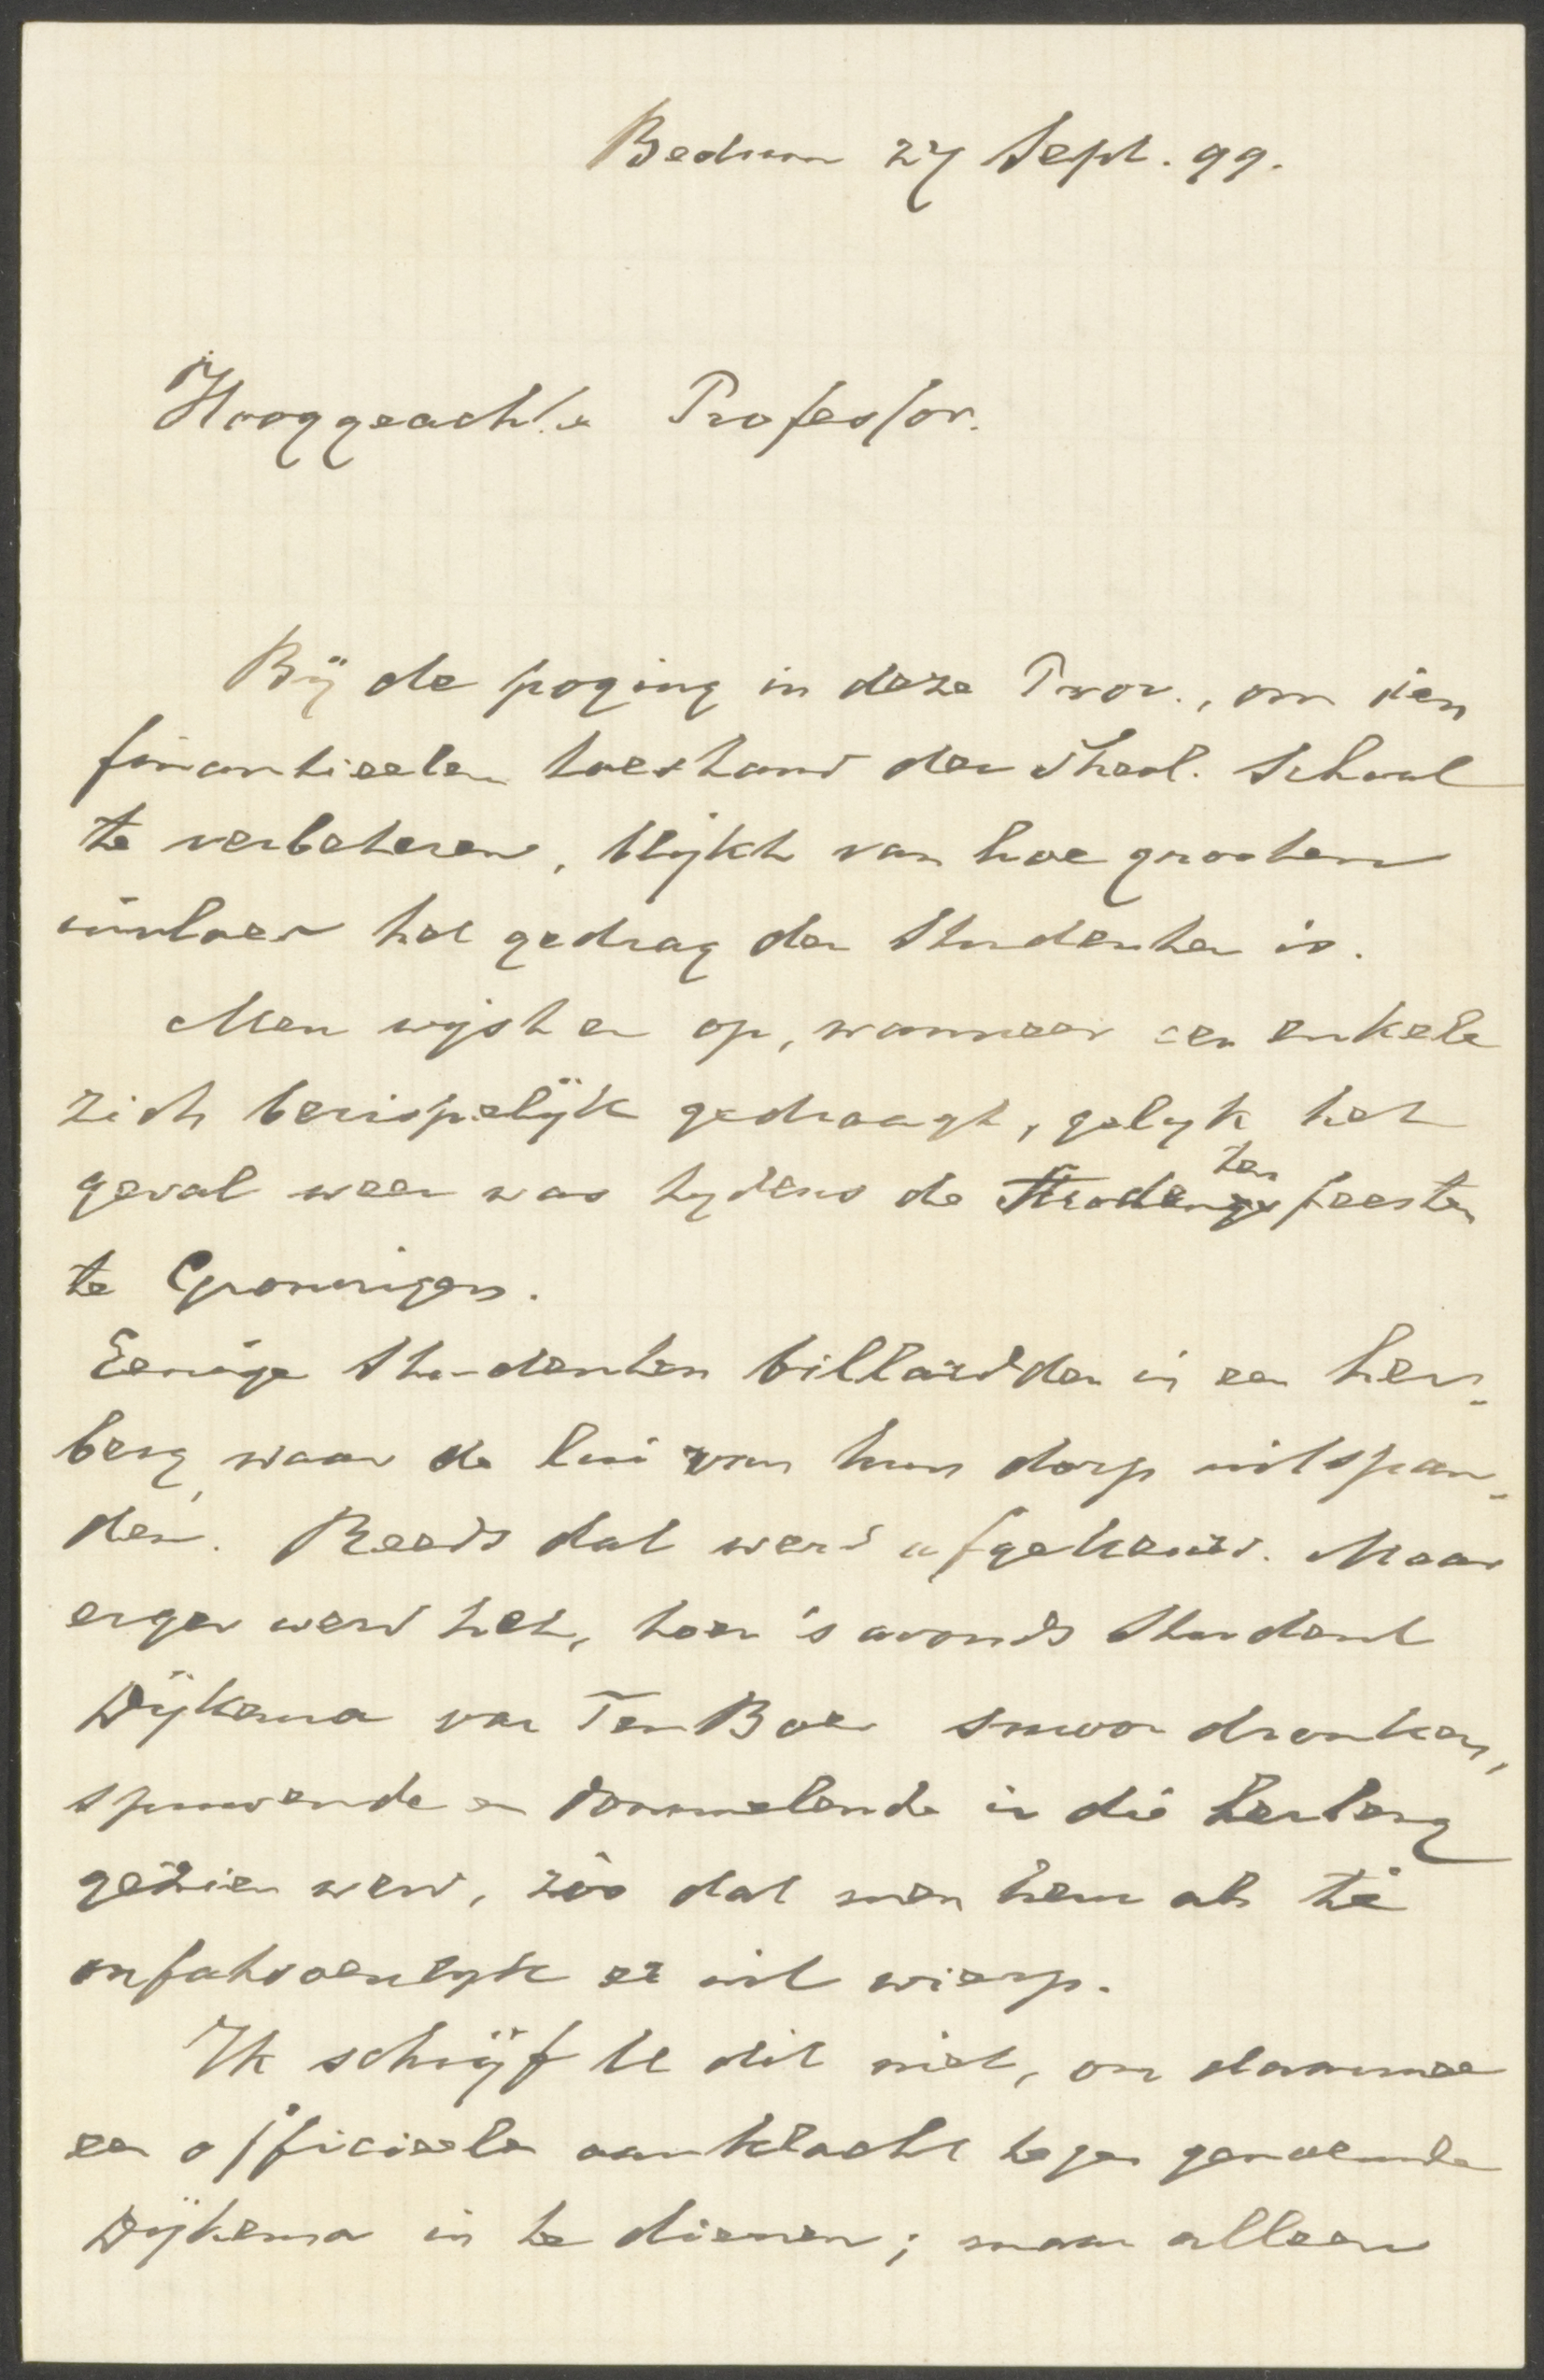 Bedum 27 Sept. 99.
Hooggeachte Professor.
Bij de poging in deze Prov., om den
finantieelen toestand der Theol. School
te verbeteren, blijkt van hoe grooten
invloed het gedrag der Studenten is.
Men wijst er op, wanneer een enkele
zich berispelijk gedraagt, gelijk het
geval weer was tydens de Studenten feesten
te Groningen.
Eenige Studenten billardden in een her-
berg, waar de lui van hun dorp uitspan-
den. Reeds dat werd afgekeurd. Maar
erger werd het, toen 's avonds Student
Dijkema van Ten Boer smoordronken,
spuwende en dommelende in die herberg
gezien werd, zóó dat men hem als té
onfatsoenlyk er uit wierp.
Ik schrijf U dit niet, om daarmee
een officieele aanklacht tegen genoemde
Dijkema in te dienen; maar alleen